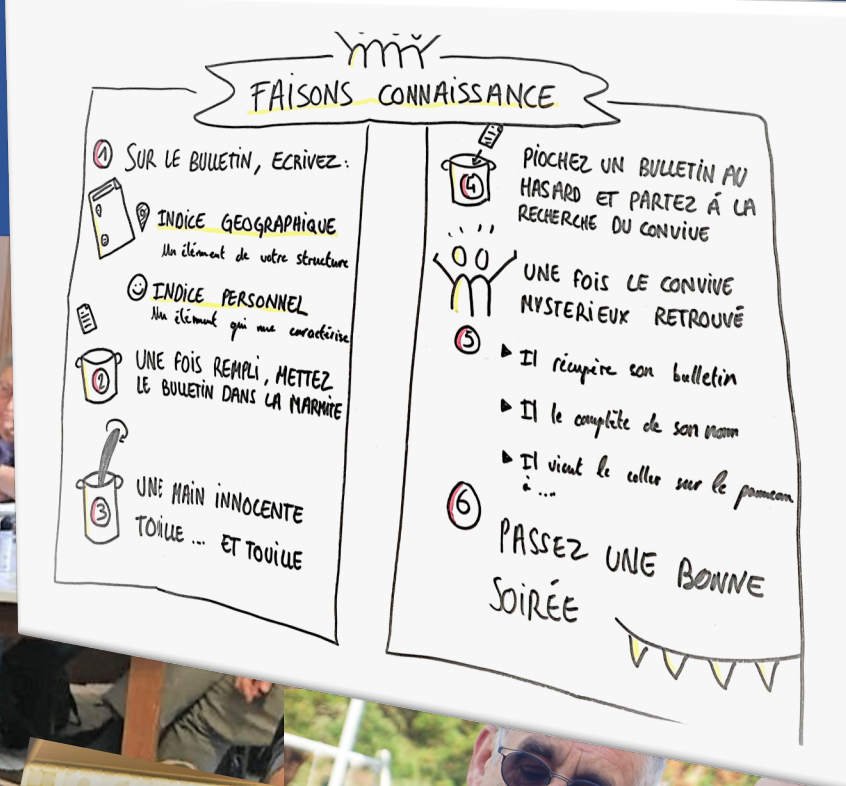 FAISONS CONNAISSANCE
1 SUR LE BULLETIN, ECRIVEZ:
INDICE GEOGRAPHIQUE
Un élément de votre structure
INDICE PERSONNEL
Un élément qui me caractérise
2 UNE FOIS REMPLI, METTEZ
LE BULLETIN DANS LA MARMITE
3 UNE MAIN INNOCENTE
TOUILLE ... ET TOUILLE
4 PIOCHEZ UN BULLETIN AU
HASARD ET PARTEZ À LA
RECHERCHE DU CONVIVE
UNE FOIS LE CONVIVE
MYSTERIEUX RETROUVÉ
5
Il récupère son bulletin
Il le complète de son nom
Il vient le coller sur le panneau
à ...
6 PASSEZ UNE BONNE
SOIRÉE